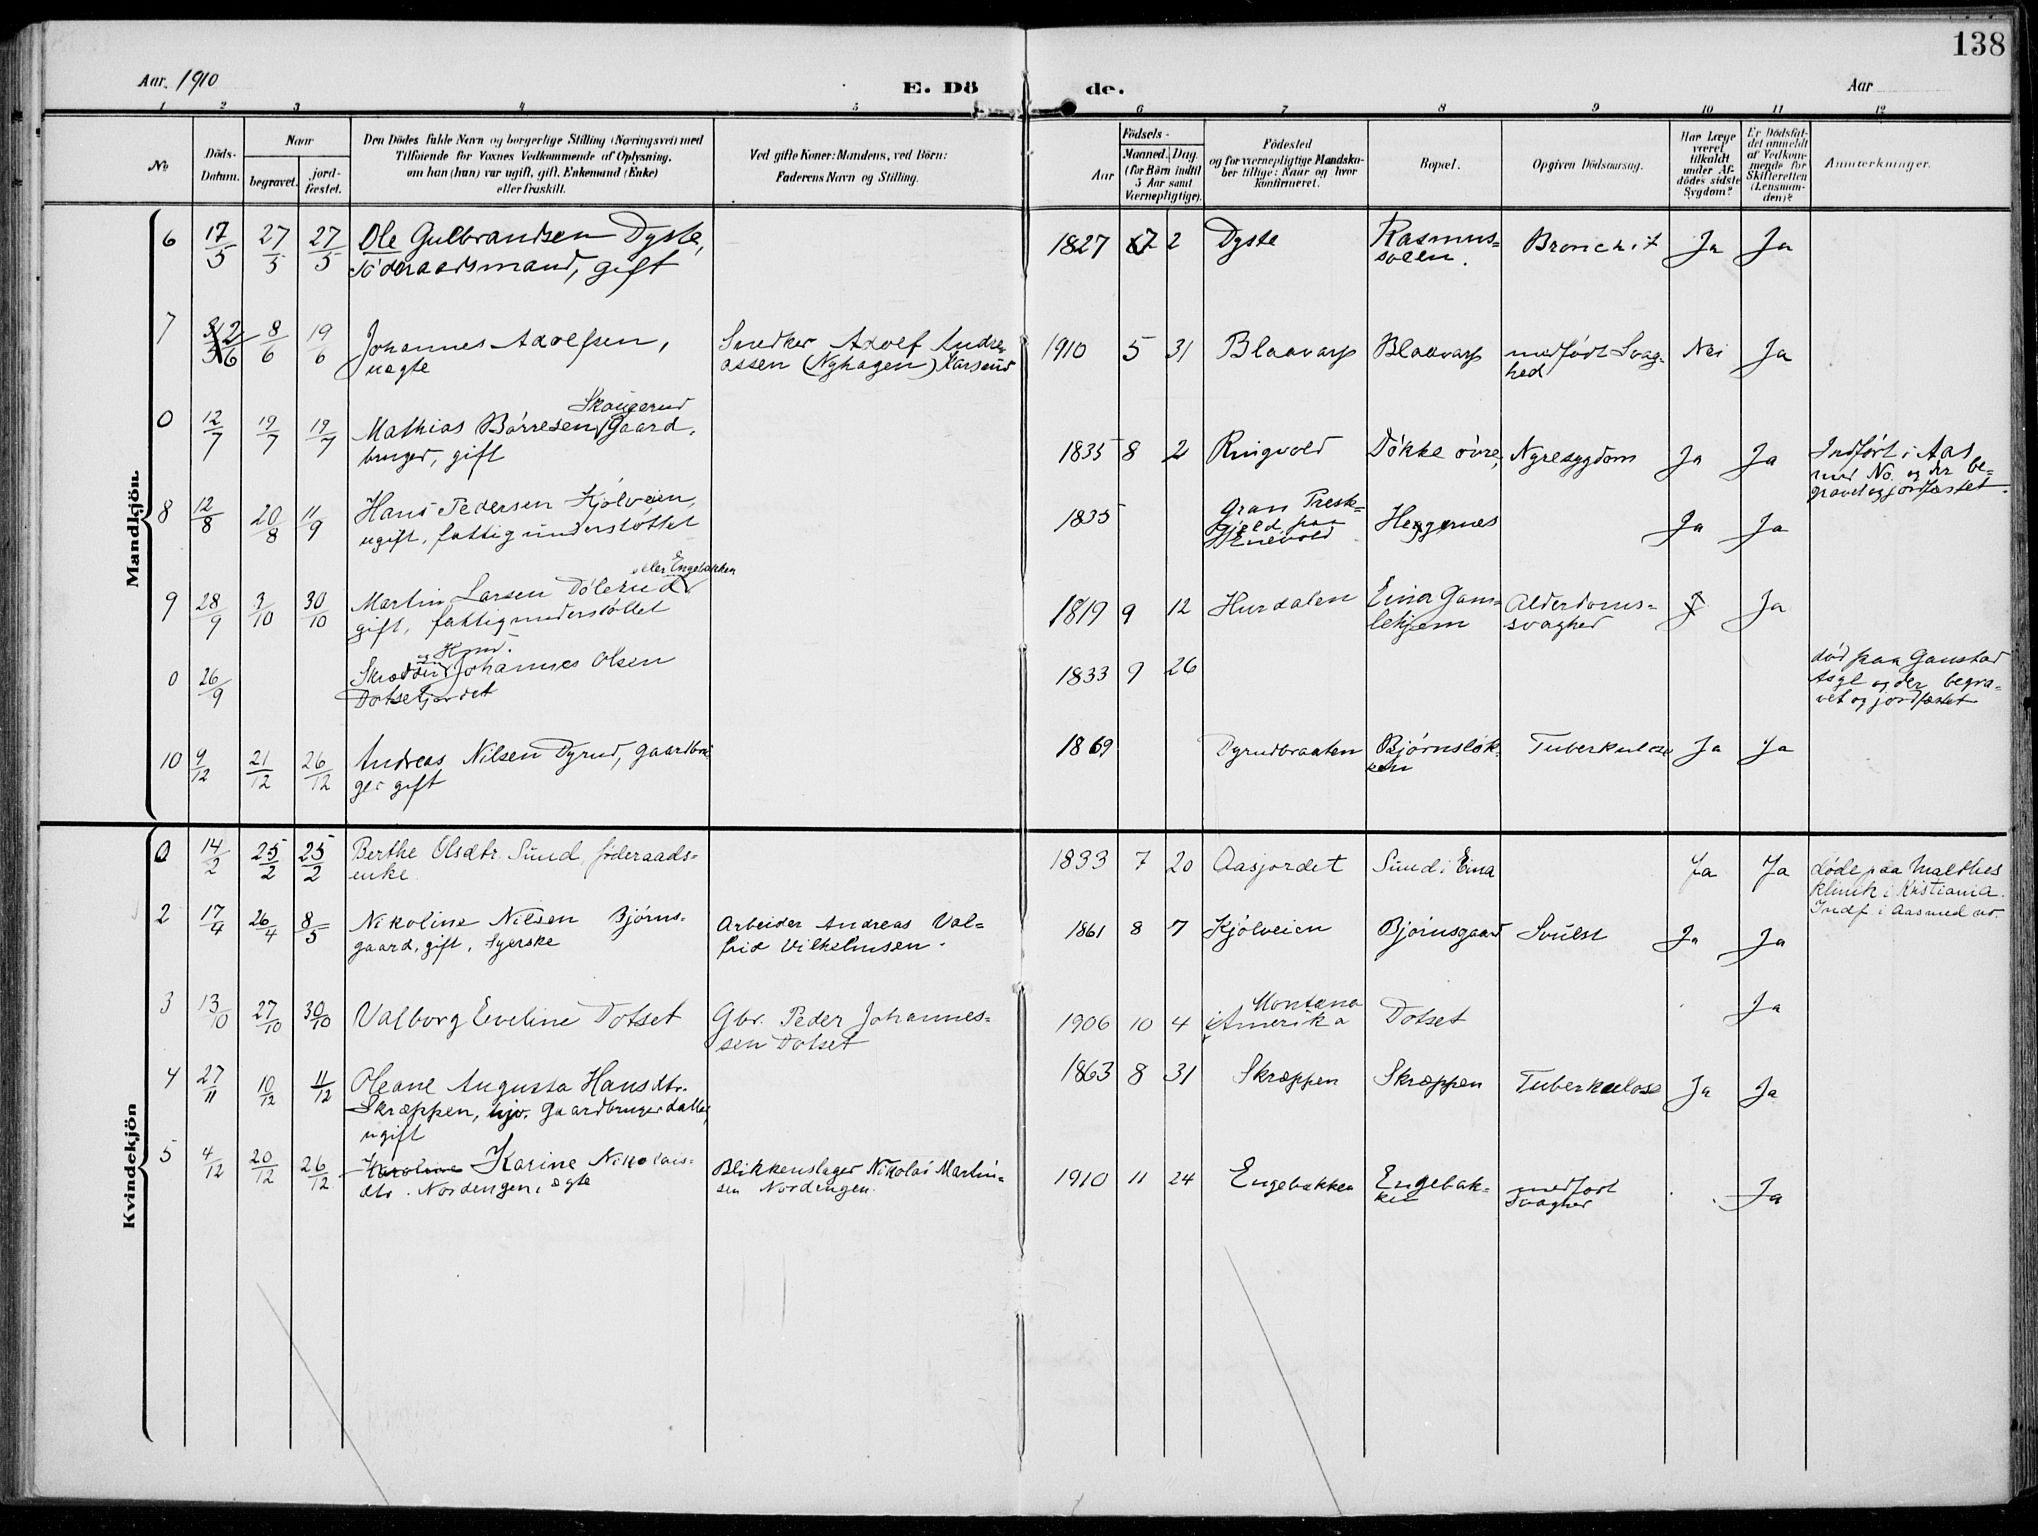 138
Aar. 1910
E. Dö de.
Aar
1 2 3 4 5 6 7 8 9 10 11 12
No
Döds-
Datum.
Naar
begravet.
jord-
fæstet.
Den Dödes fulde Navn og borgerlige Stilling (Næringsvei) med
Tilföiende for Voxnes Vedkommende af Oplysning,
om han (hun) var ugift, gift, Enkemand (Enke)
eller fraskilt.
Ved gifte Koner: Mandens, ved Börn:
Faderens Navn og Stilling.
Födsels-
Aar
Maaned. Dag.
(for Börn indtil
5 Aar samt
Værnepligtige).
Födested
og for værnepligtige Mandska-
ber tillige: Naar og hvor
konfirmeret.
Bopæl.
Opgiven Dödsaarsag.
Har Læge
været
tilkaldt
under Af-
dödes sidste
Sygdom?
Er Dödsfal-
det anmeldt
af Vedkom-
mende for
Skifteretten
(Lensman-
den)?
Anmærkninger.
Mandkjön.
6 17/5 27/5 27/5 Ole Gulbrandsen Dyste,
föderaadsmand, gift
1827 7 2 Dyste Rasmus-
solen. Bronchit Ja Ja
7 2/6 8/6 19/6 Johannes Adolfsen,
uægte
Snedker Adolf Andre-
assen (Nyhagen)
1910 5 31 Blaavarp Blaavarp medfödt Svag-
hed Nei Ja
0 12/7 19/7 19/7 Mathias Börresen Skaugerud Gaard-
bruger, gift
1835 8 2 Ringvold Dökke övre, Nyresygdom Ja Ja Indfört i Aas
med No. og der be-
gravet og jordfæstet.
8 12/8 20/8 11/9 Hans Pedersen Kjölveien,
ugift, fattigunderstöttet
1835 Gran Prest-
gjeld, paa
Enevold Ja Ja
9 28/9 3/10 30/10 Martin Larsen Dölerud eller Engebakken
gift, fattigunderstöttet
1819 9 12 Hurdalen Eina Gam-
lehjem Alderdoms-
svaghed Ja
0 26/9 Skrædder og Hmd. Johannes Olsen
Dotsetjordet
1833 9 26 död paa Gaustad
Asyl og der begra-
vet og jordfæstet
10 9/12 21/12 26/12 Andreas Nilsen Dyrud, gaardbru-
ger gift
1869 Dyrudbraaten Björnslök-
ken Tuberkulose Ja Ja
Kvindekjön
0 14/2 25/2 25/2 Berthe Olsdtr. Sund, föderaads-
enke.
1833 7 20 Aasjordet Sund i Eina Ja Ja döde paa Malthes
klinik i Kristiania.
Indf i Aas med no.
2 17/4 26/4 8/5 Nikoline Nilsen Björns-
gaard, gift, Syerske
Arbeider Andreas Val-
frid Vilhelmsen.
1861 8 7 Kjölveien Björnsgaard Svulst Ja Ja
3 13/10 27/10 30/10 Valborg Eveline Dotset
Gbr. Peder Johannes-
sen Dotset
1906 10 4 Montana
i Amerika Dotset Ja
4 27/11 10/12 11/12 Oleane Augusta Hansdtr.
Skræppen, hjv. Gaardbrugerdatter,
ugift
1863 8 31 Skræppen Skræppen Tuberkulose Ja Ja
5 4/12 20/12 26/12 Karoline Karine Nikolais-
dtr. Nordengen, ægte
Blikkenslager Nikolai Martin-
sen Nordengen.
1910 11 24 Engebakken Engebak-
ken medfödt
Svaghed Ja